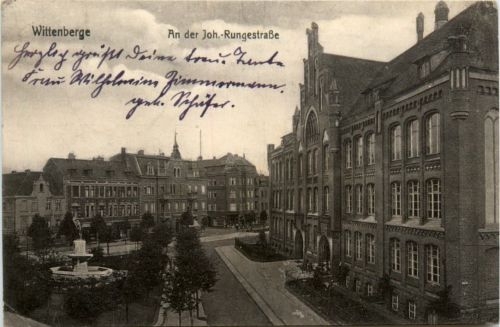 Wittenberge
An der Joh.-Rungestraße
Herzlich grüßt Deine treu. Tante
Frau Wilhelmine Zimmermann.
geb. Schäfer.